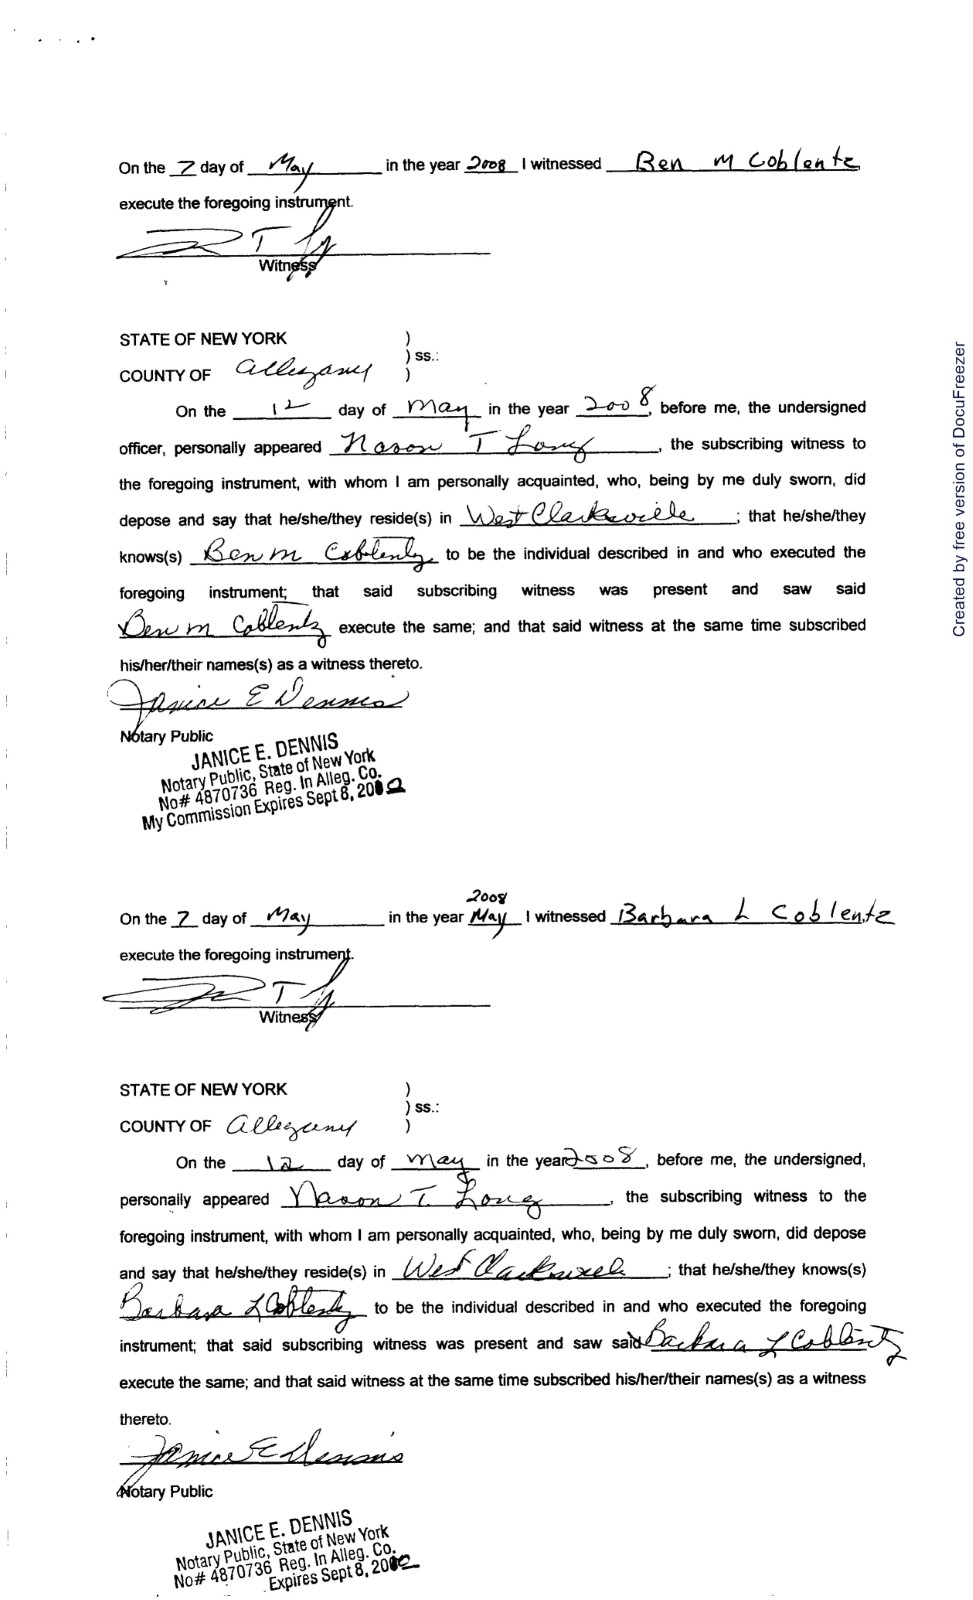 On the 7 day of May in the year 2008 I witnessed Ben M Coblentz
execute the foregoing instrument.
Witness
STATE OF NEW YORK )
) ss.:
COUNTY OF Allegany )
On the 12 day of May in the year 2008, before me, the undersigned
officer, personally appeared Nason T Long, the subscribing witness to
the foregoing instrument, with whom I am personally acquainted, who, being by me duly sworn, did
depose and say that he/she/they reside(s) in West Clarksville ; that he/she/they
knows(s) Ben M Coblentz to be the individual described in and who executed the
foregoing instrument; that said subscribing witness was present and saw said
Ben M Coblentz execute the same; and that said witness at the same time subscribed
his/her/their names(s) as a witness thereto.
Janice E Dennis
Notary Public
JANICE E. DENNIS
Notary Public, State of New York
No# 4870736 Reg. In Alleg. Co.
My Commission Expires Sept 8, 20
2008
On the 7 day of May in the year May I witnessed Barbara L Coblentz
execute the foregoing instrument.
Witness
STATE OF NEW YORK )
) ss.:
COUNTY OF Allegany )
On the 12 day of May in the year 2008, before me, the undersigned,
personally appeared Nason T. Long, the subscribing witness to the
foregoing instrument, with whom I am personally acquainted, who, being by me duly sworn, did depose
and say that he/she/they reside(s) in West Clarksville ; that he/she/they knows(s)
Barbara L Coblentz to be the individual described in and who executed the foregoing
instrument; that said subscribing witness was present and saw said Barbara L Coblentz
execute the same; and that said witness at the same time subscribed his/her/their names(s) as a witness
thereto.
Janice E Dennis
Notary Public
JANICE E. DENNIS
Notary Public, State of New York
No# 4870736 Reg. In Alleg. Co.
Expires Sept 8, 20
Created by free version of DocuFreezer